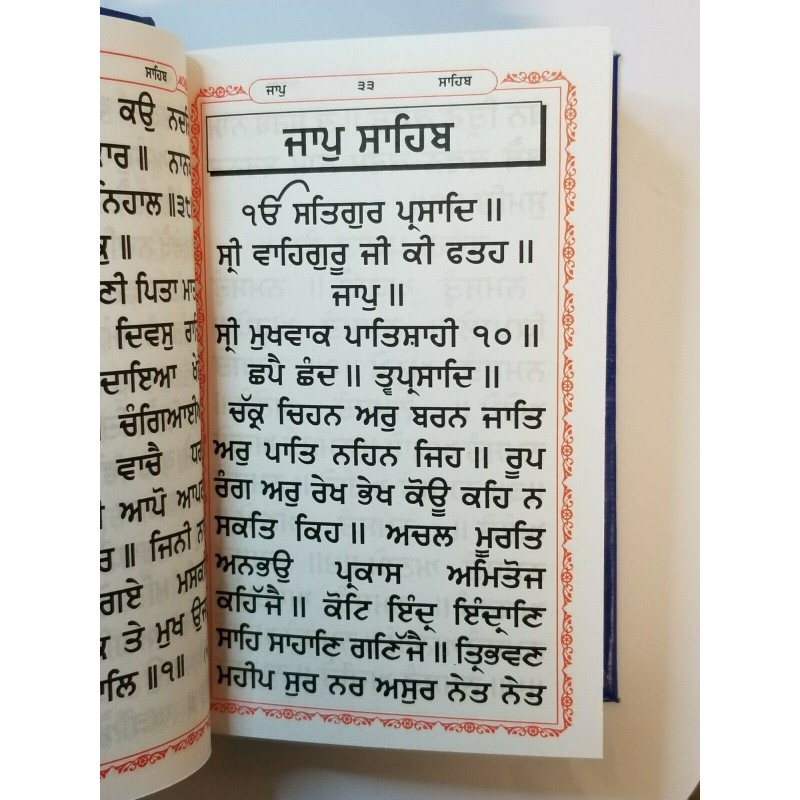 ਸਾਹਿਬ
ਕਉ ਨਦਰਿ
ਨਿਹਾਲ ॥੩੮॥
ਪਿਤਾ ਮਾਤਾ
ਦਿਵਸੁ ਰਾਤਿ
ਚੰਗਿਆਈਆ
ਵਾਚੈ ਧਰਮੁ
ਆਪੋ ਆਪਣੀ
॥ ਜਿਨੀ ਨਾਮੁ
ਗਏ ਮਸਕਤਿ
ਤੇ ਮੁਖ ਉਜਲੇ
॥੧॥
ਜਾਪੁ ੩੩ ਸਾਹਿਬ
ਜਾਪੁ ਸਾਹਿਬ
ੴ ਸਤਿਗੁਰ ਪ੍ਰਸਾਦਿ ॥
ਸ੍ਰੀ ਵਾਹਿਗੁਰੂ ਜੀ ਕੀ ਫਤਹ ॥
ਜਾਪੁ ॥
ਸ੍ਰੀ ਮੁਖਵਾਕ ਪਾਤਿਸ਼ਾਹੀ ੧੦ ॥
ਛਪੈ ਛੰਦ ॥ ਤ੍ਵਪ੍ਰਸਾਦਿ ॥
ਚੱਕ੍ਰ ਚਿਹਨ ਅਰੁ ਬਰਨ ਜਾਤਿ
ਅਰੁ ਪਾਤਿ ਨਹਿਨ ਜਿਹ ॥ ਰੂਪ
ਰੰਗ ਅਰੁ ਰੇਖ ਭੇਖ ਕੋਊ ਕਹਿ ਨ
ਸਕਤਿ ਕਿਹ ॥ ਅਚਲ ਮੂਰਤਿ
ਅਨਭਉ ਪ੍ਰਕਾਸ ਅਮਿਤੋਜ
ਕਹਿੱਜੈ ॥ ਕੋਟਿ ਇੰਦ੍ਰ ਇੰਦ੍ਰਾਣਿ
ਸਾਹਿ ਸਾਹਾਣਿ ਗਣਿੱਜੈ ॥ ਤ੍ਰਿਭਵਣ
ਮਹੀਪ ਸੁਰ ਨਰ ਅਸੁਰ ਨੇਤ ਨੇਤ